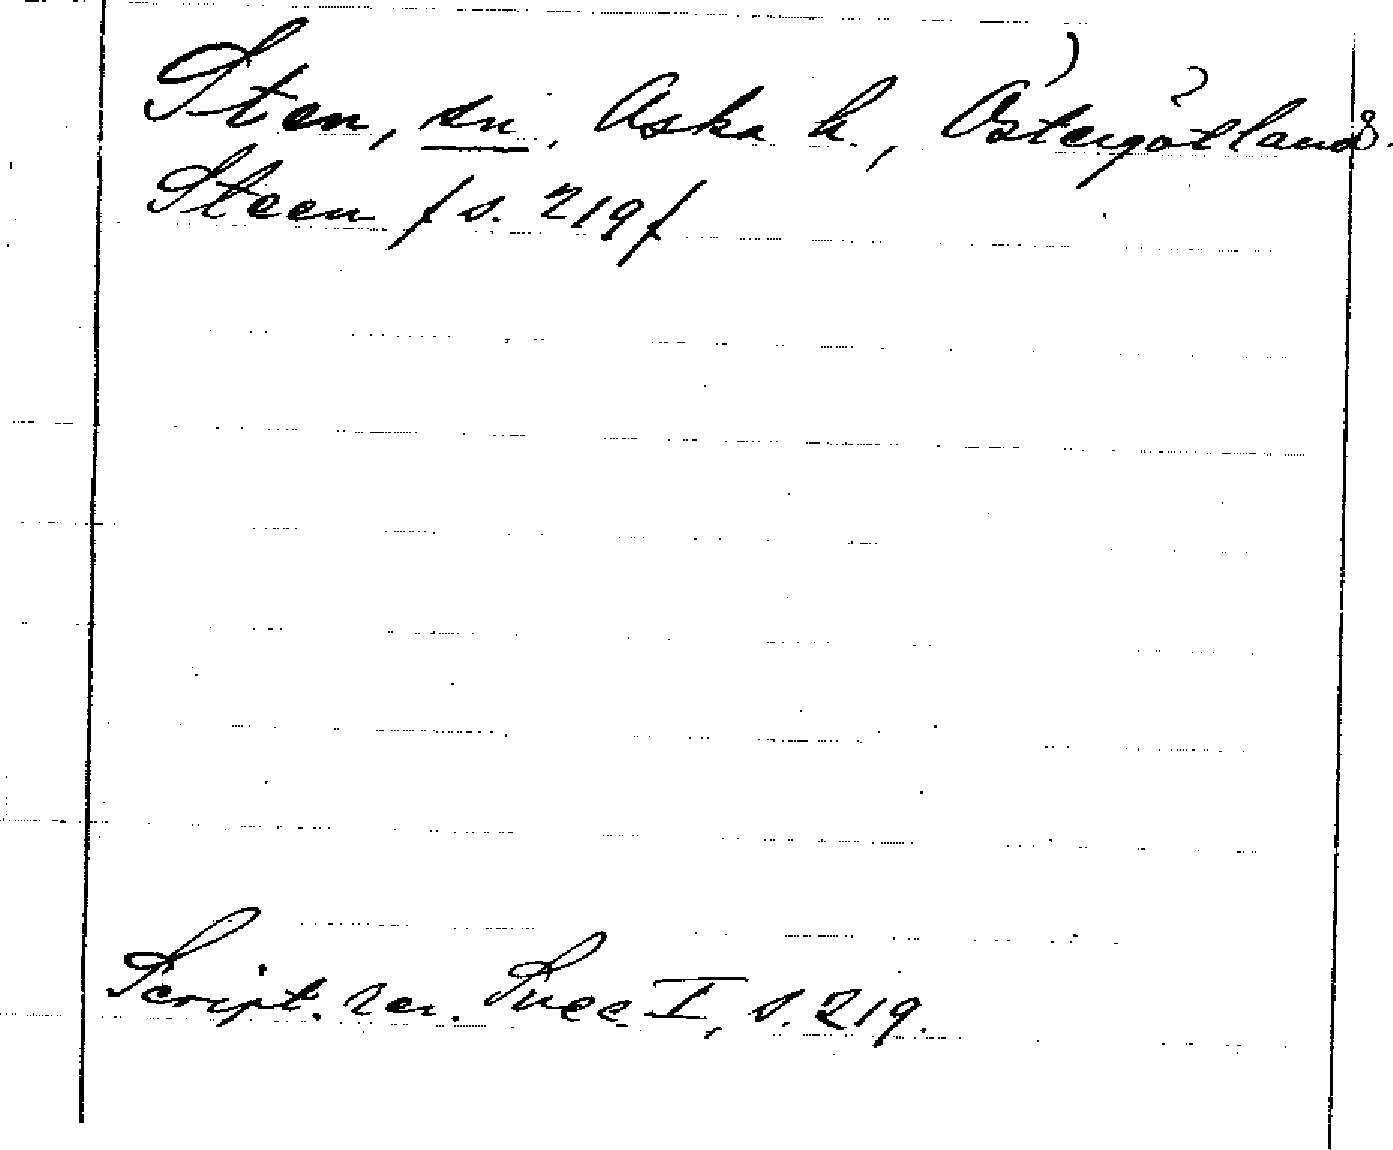 Sten, sn. Aska h., Östergötland.
Steen /s. 219/
Script. rer. Svec. I, s. 219.